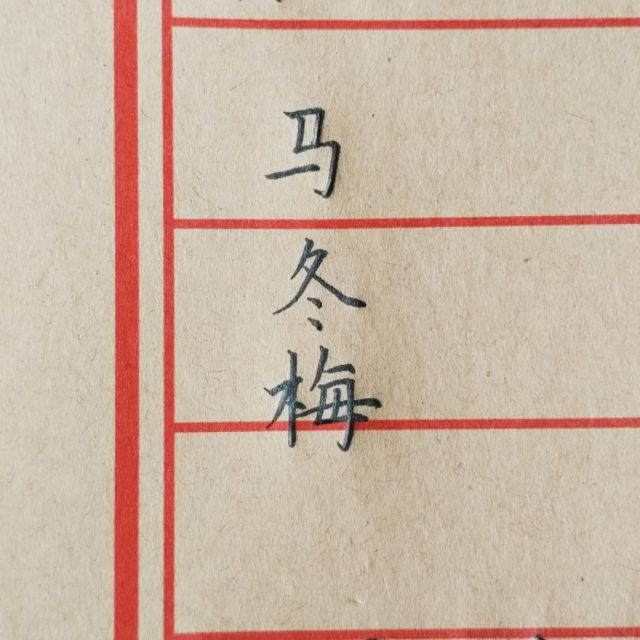 马冬梅